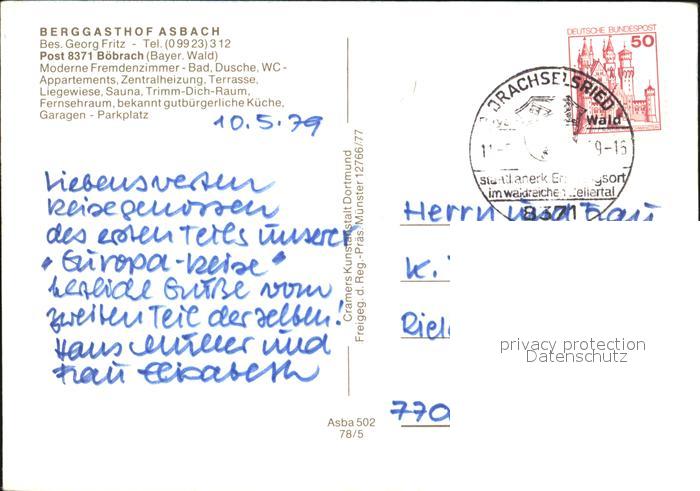 BERGGASTHOF ASBACH
Bes. Georg Fritz - Tel. (09923) 312
Post 8371 Böbrach (Bayer. Wald)
Moderne Fremdenzimmer - Bad, Dusche, WC -
Appartements, Zentralheizung, Terrasse,
Liegewiese, Sauna, Trimm-Dich-Raum,
Fernsehraum, bekannt gutbürgerliche Küche,
Garagen - Parkplatz
10.5.79
Liebenswerten
Reisegenossen
des ersten Teils unserer
"Europa-Reise"
herzliche Grüße vom
zweiten Teil derselben!
Hans Müller und
Frau Elisabeth
Cramers Kunstanstalt Dortmund
Freigeg. d. Reg.-Präs. Münster 12766/77
Asba 502
78/5
DEUTSCHE BUNDESPOST
50
DRACHSELSRIED
Wald
9-16
im waldreichen Zellertal
8371
Herrn und Frau
K.
770
privacy protection
Datenschutz